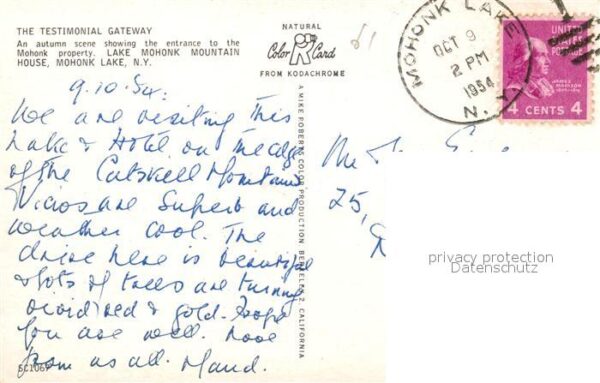 THE TESTIMONIAL GATEWAY
An autumn scene showing the entrance to the
Mohonk property. LAKE MOHONK MOUNTAIN
HOUSE, MOHONK LAKE, N.Y.
NATURAL
Color Card
FROM KODACHROME
MOHONK LAKE
OCT 9
2 PM
1954
N.Y.
UNITED STATES
POSTAGE
JAMES
MADISON
4 CENTS 4
9.10.54:
We are visiting this
Lake & Hotel on the edge
of the Catskill Mountains
Views are Superb and
weather cool. The
drive here is beautiful
& lots of trees are turning
vivid red & gold. Hope
you are well. Love
from us all. Maud.
A MIKE ROBERTS COLOR PRODUCTION BERKELEY 2, CALIFORNIA
25,
privacy protection
Datenschutz